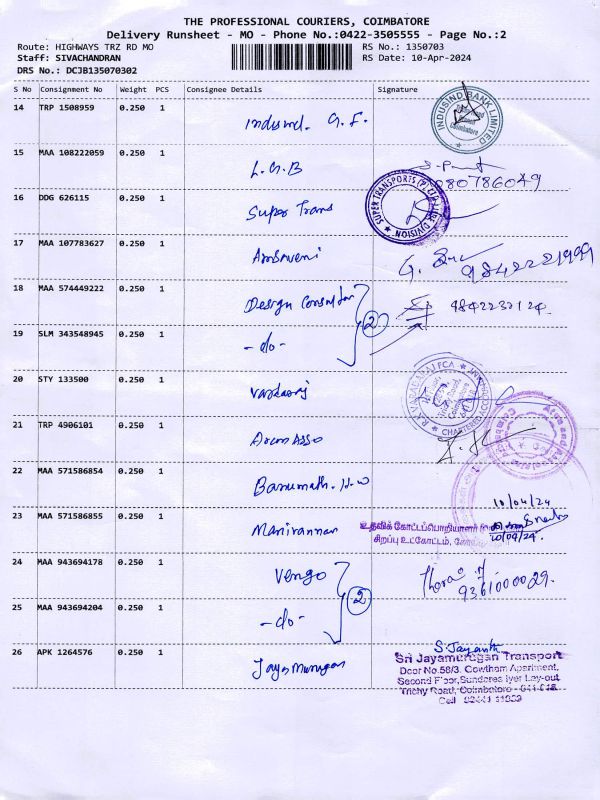 THE PROFESSIONAL COURIERS, COIMBATORE
Delivery Runsheet - MO - Phone No.:0422-3505555 - Page No.:2
Route: HIGHWAYS TRZ RD MO RS No.: 1350703
Staff: SIVACHANDRAN RS Date: 10-Apr-2024
DRS No.: DCJB135070302
S No Consignment No Weight PCS Consignee Details Signature
14 TRP 1508959 0.250 1 Indusind. G.F. INDUSIND BANK LIMITED Coimbatore
15 MAA 108222059 0.250 1 L.G.B
16 DDG 626115 0.250 1 Super Trans SUPER TRANSPORTS (P) LTD DIVISION
17 MAA 107783627 0.250 1
18 MAA 574449222 0.250 1 Design Consultan 9842232124
19 SLM 343548945 0.250 1 -do- 2
20 STY 133500 0.250 1 Vardaraj CHARTERED
21 TRP 4906101 0.250 1 Arum Asso
22 MAA 571586854 0.250 1 Banumath. H.W 10/04/24
23 MAA 571586855 0.250 1 Manivannan உதவிக் கோட்டப்பொறியாளர் 10/04/24.
சிறப்பு உட்கோட்டம்,
24 MAA 943694178 0.250 1 Vengo 9361000029.
25 MAA 943694204 0.250 1 -do- 2
26 APK 1264576 0.250 1 Jaya Murugan S. Jayanth
Sri Jayamurugan Transport
Door No.58/3, Gowtham Apartment,
Second Floor, Sundaresa Iyer Lay-out
Trichy Road, Coimbatore - 641 018.